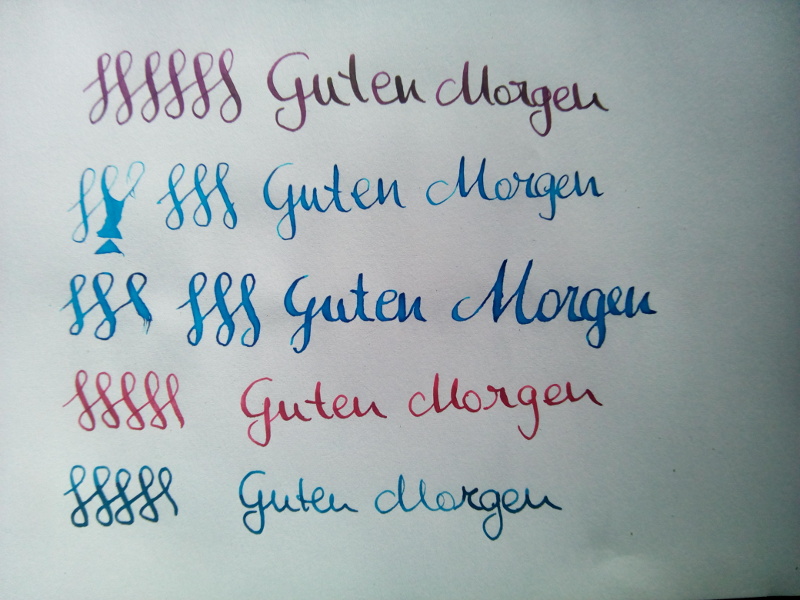 Guten Morgen
Guten Morgen
Guten Morgen
Guten Morgen
Guten Morgen